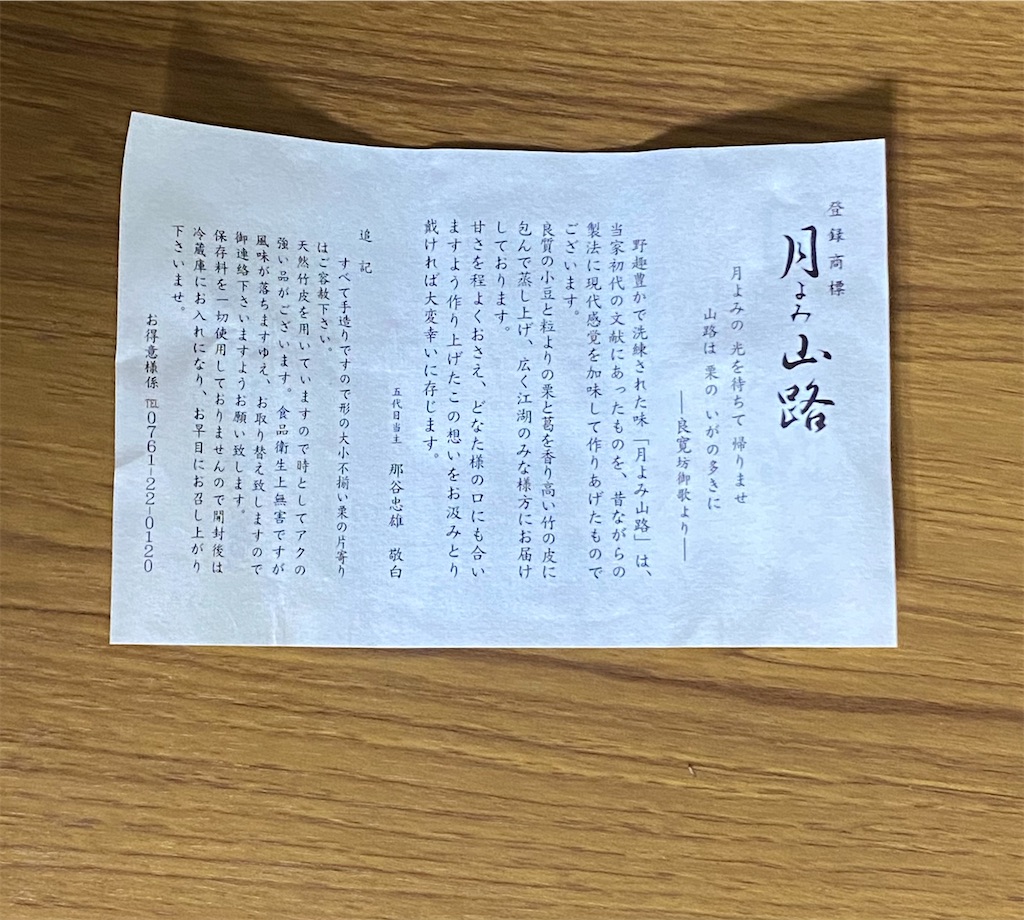 登録商標
月よみ山路
月よみの 光を待ちて 帰りませ
山路は 栗の いがの多きに
―良寛坊御歌より―
野趣豊かで洗練された味「月よみ山路」は、
当家初代の文献にあったものを、昔ながらの
製法に現代感覚を加味して作りあげたもので
ございます。
良質の小豆と粒よりの栗と葛を香り高い竹の皮に
包んで蒸し上げ、広く江湖のみな様方にお届け
しております。
甘さを程よくおさえ、どなた様の口にも合い
ますよう作り上げたこの想いをお汲みとり
戴ければ大変幸いに存じます。
五代目当主 那谷忠雄 敬白
追記
すべて手造りですので形の大小不揃い栗の片寄り
はご容赦下さい。
天然竹皮を用いていますので時としてアクの
強い品がございます。食品衛生上無害ですが
風味が落ちますゆえ、お取り替え致しますので
御連絡下さいますようお願い致します。
保存料を一切使用しておりませんので開封後は
冷蔵庫にお入れになり、お早目にお召し上がり
下さいませ。
お得意様係 ℡0761-22-0120